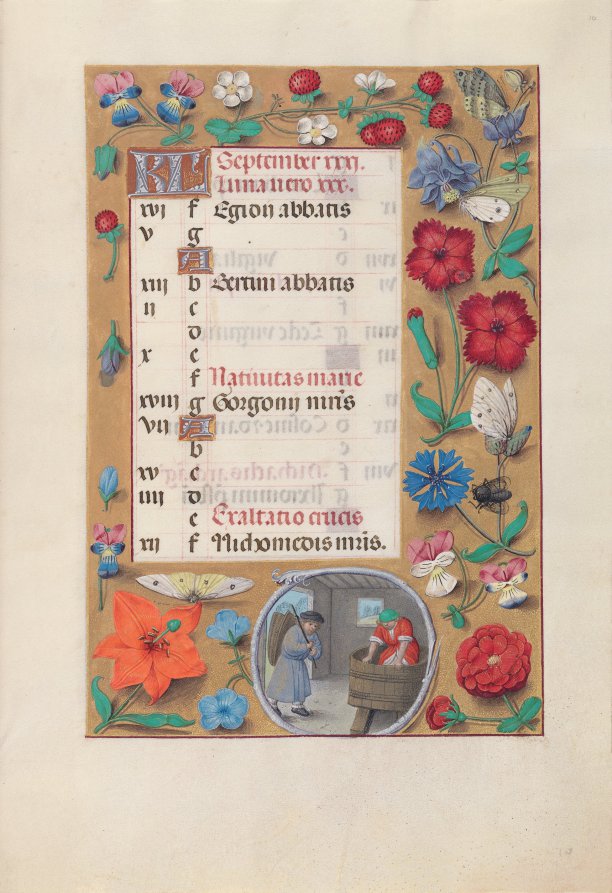 KL September xxxi.
Luna vero xxx.
xvi f Egidii abbatis
v g
A
xiii b Bertini abbatis
ii c
d
x e
f Nativitas marie
xviii g Gorgonii mr̃is
vii A
b
xv c
iiii d
e Exaltatio crucis
xii f Nichomedis mr̃is.